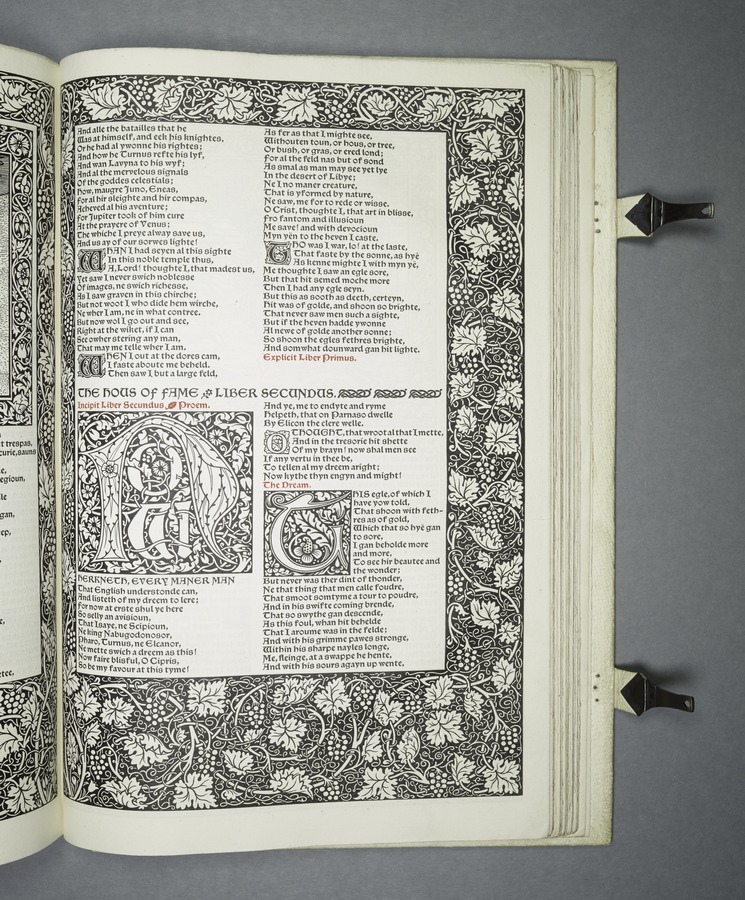 t trespas,
curie, sauns
e,
egioun,
le
gan,
ep,
e,
etee,
And alle the batailles that he
Was at himself, and eek his knightes,
Or he had al ywonne his rightes;
And how he Turnus refte his lyf,
And wan Lavyna to his wyf;
And al the mervelous signals
Of the goddes celestials;
How, maugre Juno, Eneas,
For al hir sleighte and hir compas,
Acheved al his aventure;
For Jupiter took of him cure
At the prayere of Venus;
The whiche I preye alway save us,
And us ay of our sorwes lighte!
WHAN I had seyen al this sighte
In this noble temple thus,
A, Lord! thoughte I, that madest us,
Yet saw I never swich noblesse
Of images, ne swich richesse,
As I saw graven in this chirche;
But not woot I who dide hem wirche,
Ne wher I am, ne in what contree.
But now wol I go out and see,
Right at the wiket, if I can
See owher stering any man,
That may me telle wher I am.
WHEN I out at the dores cam,
I faste aboute me beheld.
Then saw I but a large feld,
As fer as that I mighte see,
Withouten toun, or hous, or tree,
Or bush, or gras, or ered lond;
For al the feld nas but of sond
As smal as man may see yet lye
In the desert of Libye;
Ne I no maner creature,
That is yformed by nature,
Ne saw, me for to rede or wisse.
O Crist, thoughte I, that art in blisse,
Fro fantom and illusioun
Me save! and with devocioun
Myn yën to the heven I caste.
THO was I war, lo! at the laste,
That faste by the sonne, as hyë
As kenne mighte I with myn yë,
Me thoughte I saw an egle sore,
But that hit semed moche more
Then I had any egle seyn.
But this as sooth as deeth, certeyn,
Hit was of golde, and shoon so brighte,
That never saw men such a sighte,
But if the heven hadde ywonne
Al newe of golde another sonne;
So shoon the egles fethres brighte,
And somwhat dounward gan hit lighte.
Explicit Liber Primus.
THE HOUS OF FAME LIBER SECUNDUS.
Incipit Liber Secundus Proem.
NOW
HERKNETH, EVERY MANER MAN
That English understonde can,
And listeth of my dreem to lere;
For now at erste shul ye here
So selly an avisioun,
That Isaye, ne Scipioun,
Ne king Nabugodonosor,
Pharo, Turnus, ne Elcanor,
Ne mette swich a dreem as this!
Now faire blisful, O Cipris,
So be my favour at this tyme!
And ye, me to endyte and ryme
Helpeth, that on Parnaso dwelle
By Elicon the clere welle.
O THOUGHT, that wroot al that I mette,
And in the tresorie hit shette
Of my brayn! now shal men see
If any vertu in thee be,
To tellen al my dreem aright;
Now kythe thyn engyn and might!
The Dream.
THIS egle, of which I
have yow told,
That shoon with feth-
res as of gold,
Which that so hyë gan
to sore,
I gan beholde more
and more,
To see hir beautee and
the wonder;
But never was ther dint of thonder,
Ne that thing that men calle foudre,
That smoot somtyme a tour to poudre,
And in his swifte coming brende,
That so swythe gan descende,
As this foul, whan hit behelde
That I aroume was in the felde;
And with his grimme pawes stronge,
Within his sharpe nayles longe,
Me, fleinge, at a swappe he hente,
And with his sours agayn up wente,